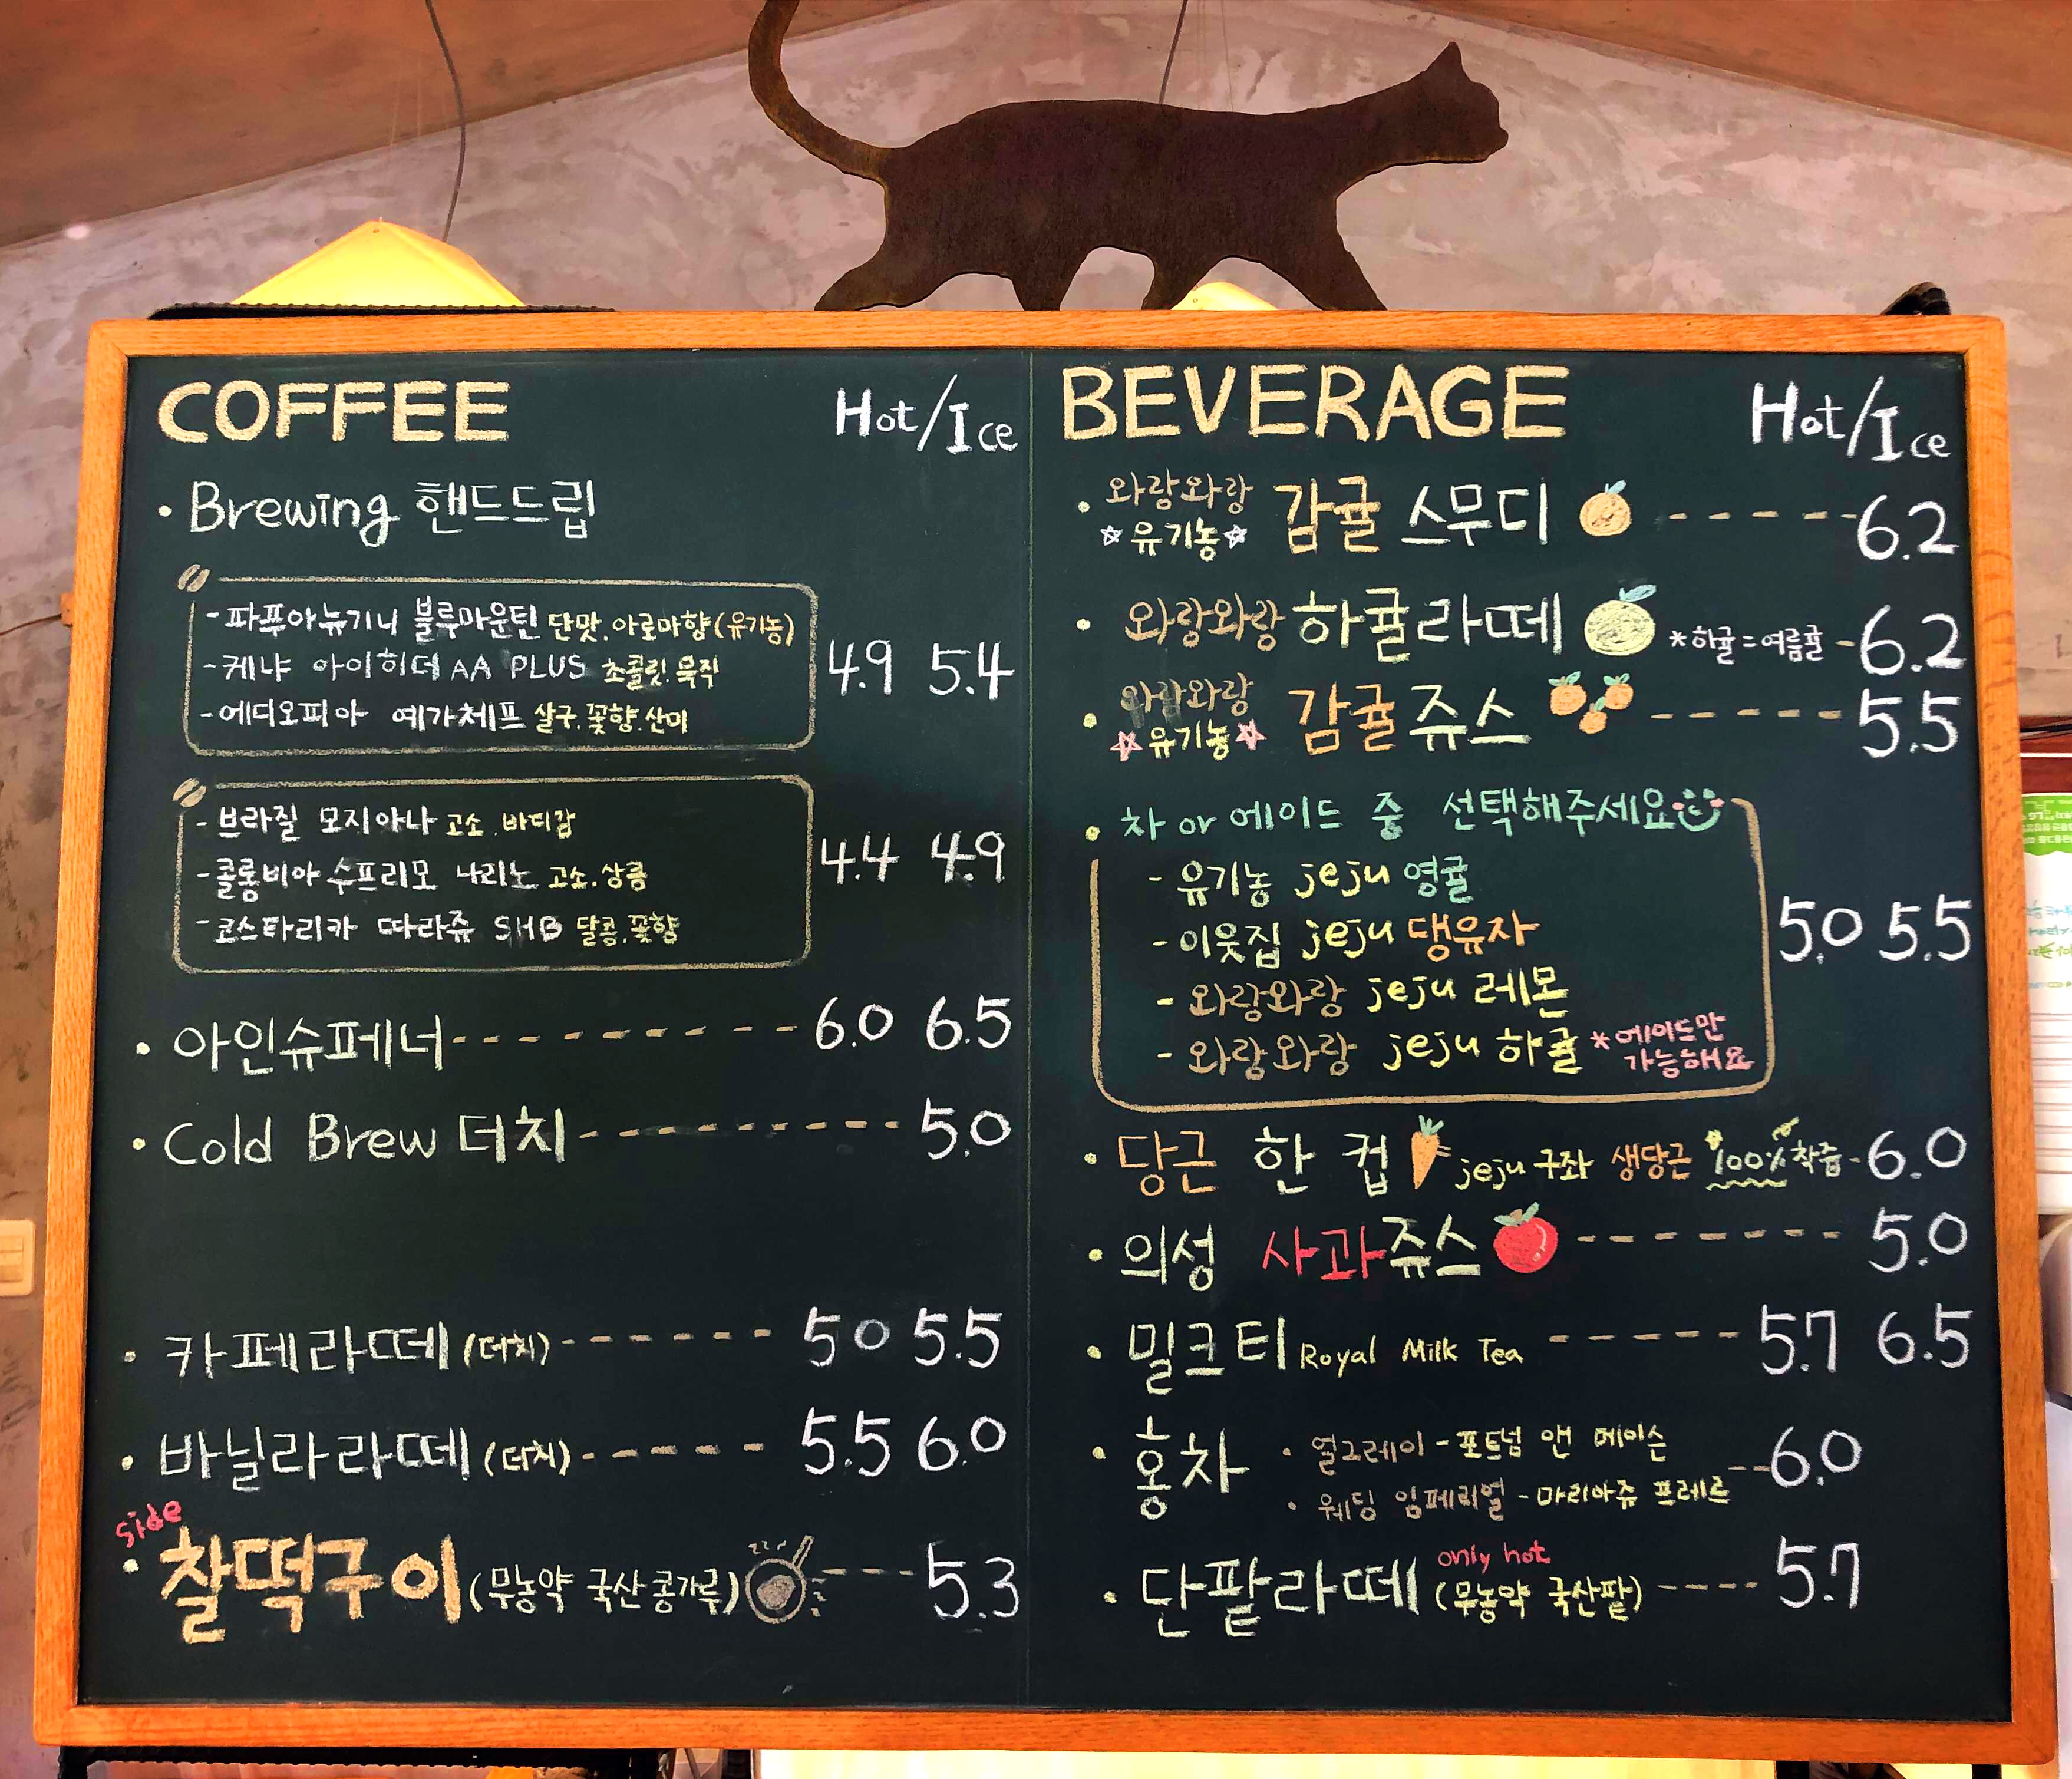 COFFEE Hot/Ice
• Brewing 핸드드립
- 파푸아뉴기니 블루마운틴 단맛.아로마향(유기농)
- 케냐 아이히더 AA PLUS 초콜릿.묵직
- 에디오피아 예가체프 살구.꽃향.산미
4.9 5.4
- 브라질 모지아나 고소.바디감
- 콜롬비아 수프리모 나리노 고소.상큼
- 코스타리카 따라쥬 SHB 달콤.꽃향
4.4 4.9
• 아인슈페너 ---------- 6.0 6.5
• Cold Brew 더치 --------- 5.0
• 카페라떼 (더치) ------- 5.0 5.5
• 바닐라라떼 (더치) ------ 5.5 6.0
side
• 찰떡구이 (무농약 국산콩가루) --- 5.3
BEVERAGE Hot/Ice
• 와랑와랑 ☆유기농☆ 감귤 스무디 ------ 6.2
• 와랑와랑 하귤라떼 *하귤=여름귤 - 6.2
• 와랑와랑 ☆유기농☆ 감귤쥬스 ------ 5.5
• 차 or 에이드 중 선택해주세요
- 유기농 jeju 영귤
- 이웃집 jeju 댕유자
- 와랑와랑 jeju 레몬
- 와랑와랑 jeju 하귤 *에이드만 가능해요
5.0 5.5
• 당근 한 컵 jeju 구좌 생당근 100% 착즙 - 6.0
• 의성 사과쥬스 -------- 5.0
• 밀크티 Royal Milk Tea ------ 5.7 6.5
• 홍차 • 얼그레이 - 포트넘 앤 메이슨
• 웨딩 임페리얼 - 마리아쥬 프레르 -- 6.0
only hot
• 단팥라떼 (무농약 국산팥) ---- 5.7